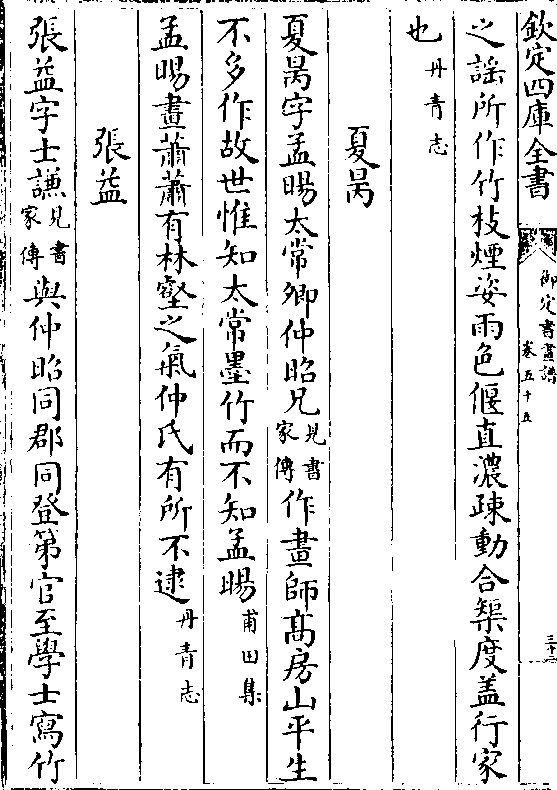 欽定四庫全書
御定書畫譜
卷五十五
三十二
之謡所作竹枝煙姿雨色偃直濃疎動合榘度盖行家
也丹青志
夏昺
夏昺字孟暘太常卿仲昭兄見書家傳作畫師髙房山平生
不多作故世惟知太常墨竹而不知孟暘甫田集
孟暘畫蕭蕭有林壑之氣仲氏有所不逮丹青志
張益
張益字士謙見書家傳與仲昭同郡同登第官至學士寫竹